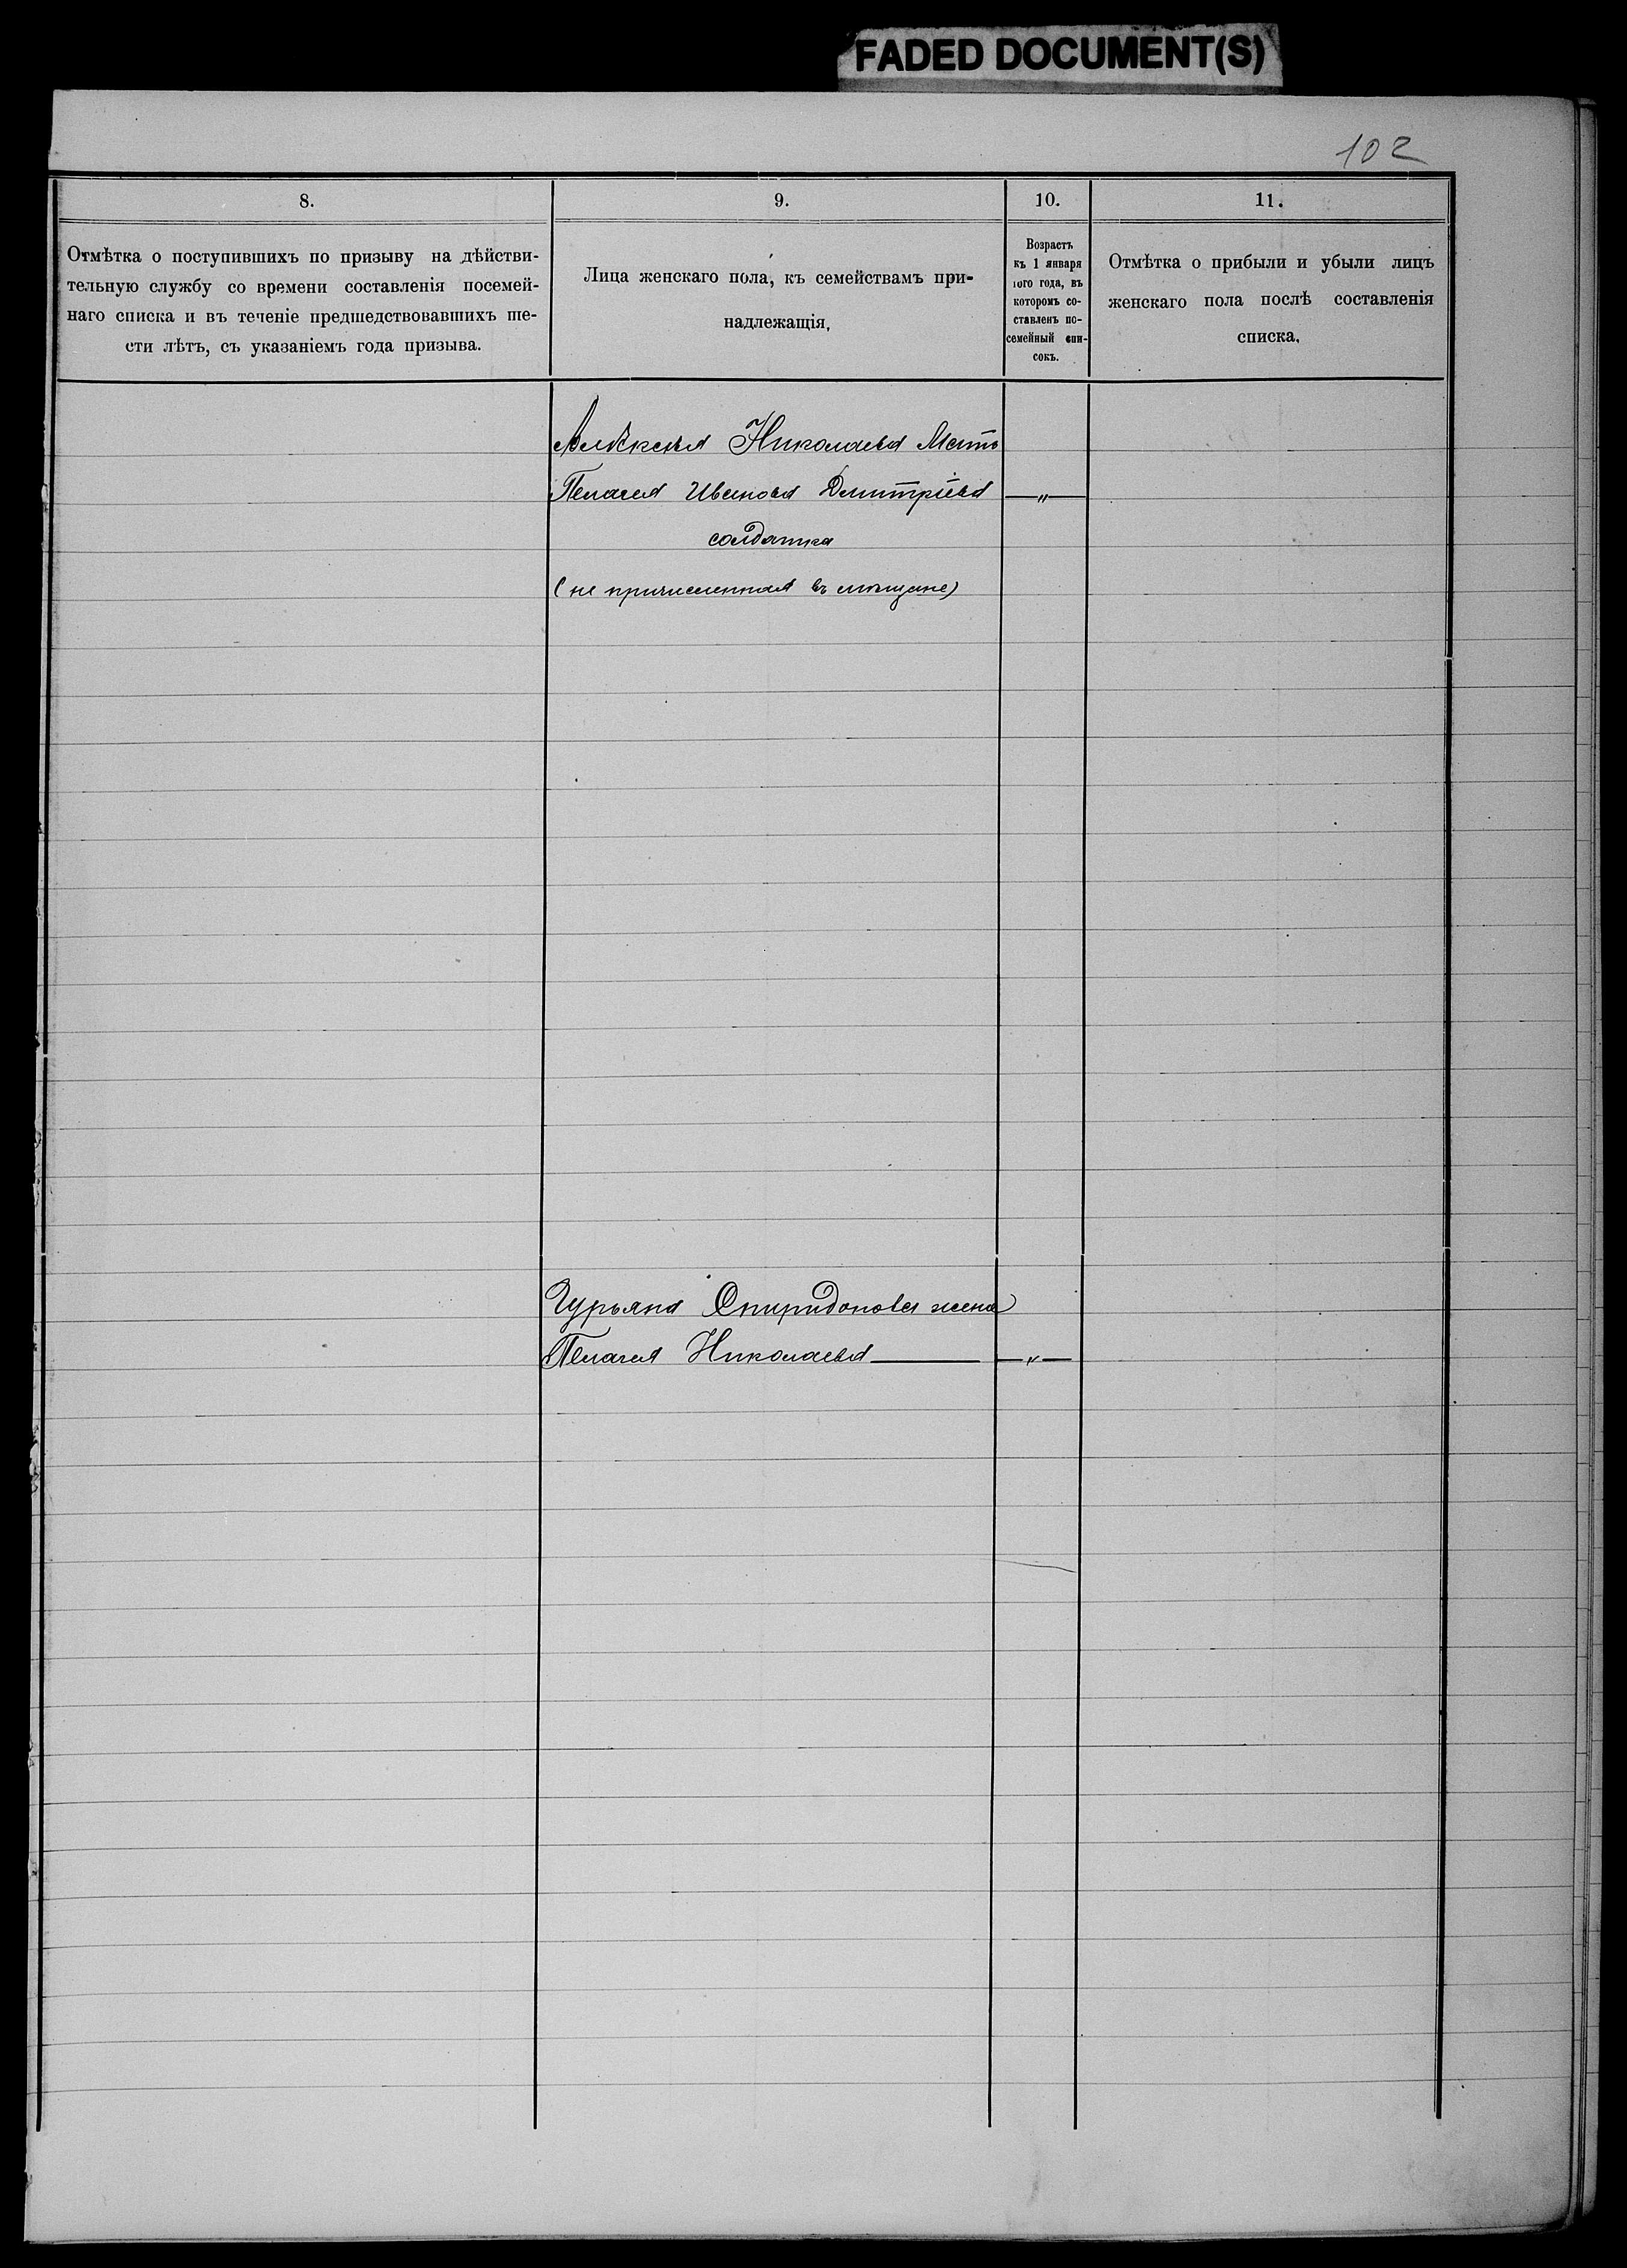 FADED DOCUMENT(S)
102
8.
9.
10.
11.
Отмѣтка о поступившихъ по призыву на дѣйстви-
тельную службу со времени составленія посемей-
наго списка и въ теченіе предшедствовавшихъ ше-
сти лѣтъ, съ указаніемъ года призыва.
Лица женскаго пола, къ семействамъ при-
надлежащія,
Возрастъ
къ 1 января
того года, въ
которомъ со-
ставленъ по-
семейный спи-
сокъ.
Отмѣтка о прибыли и убыли лицъ
женскаго пола послѣ составленія
списка.
Николаева Мать
Пелагея Иванова Дмитріева —„—
солдатка
(не причисленная въ мѣщане)
Гурьяна Спиридонова жена
Пелагея Николаева — —„—